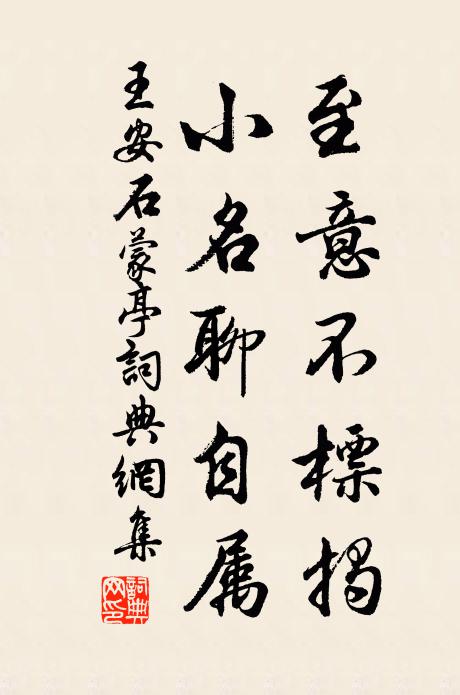 至意不標揭
小名聊自属
王安石蒙亭詞典網集
詞典网印